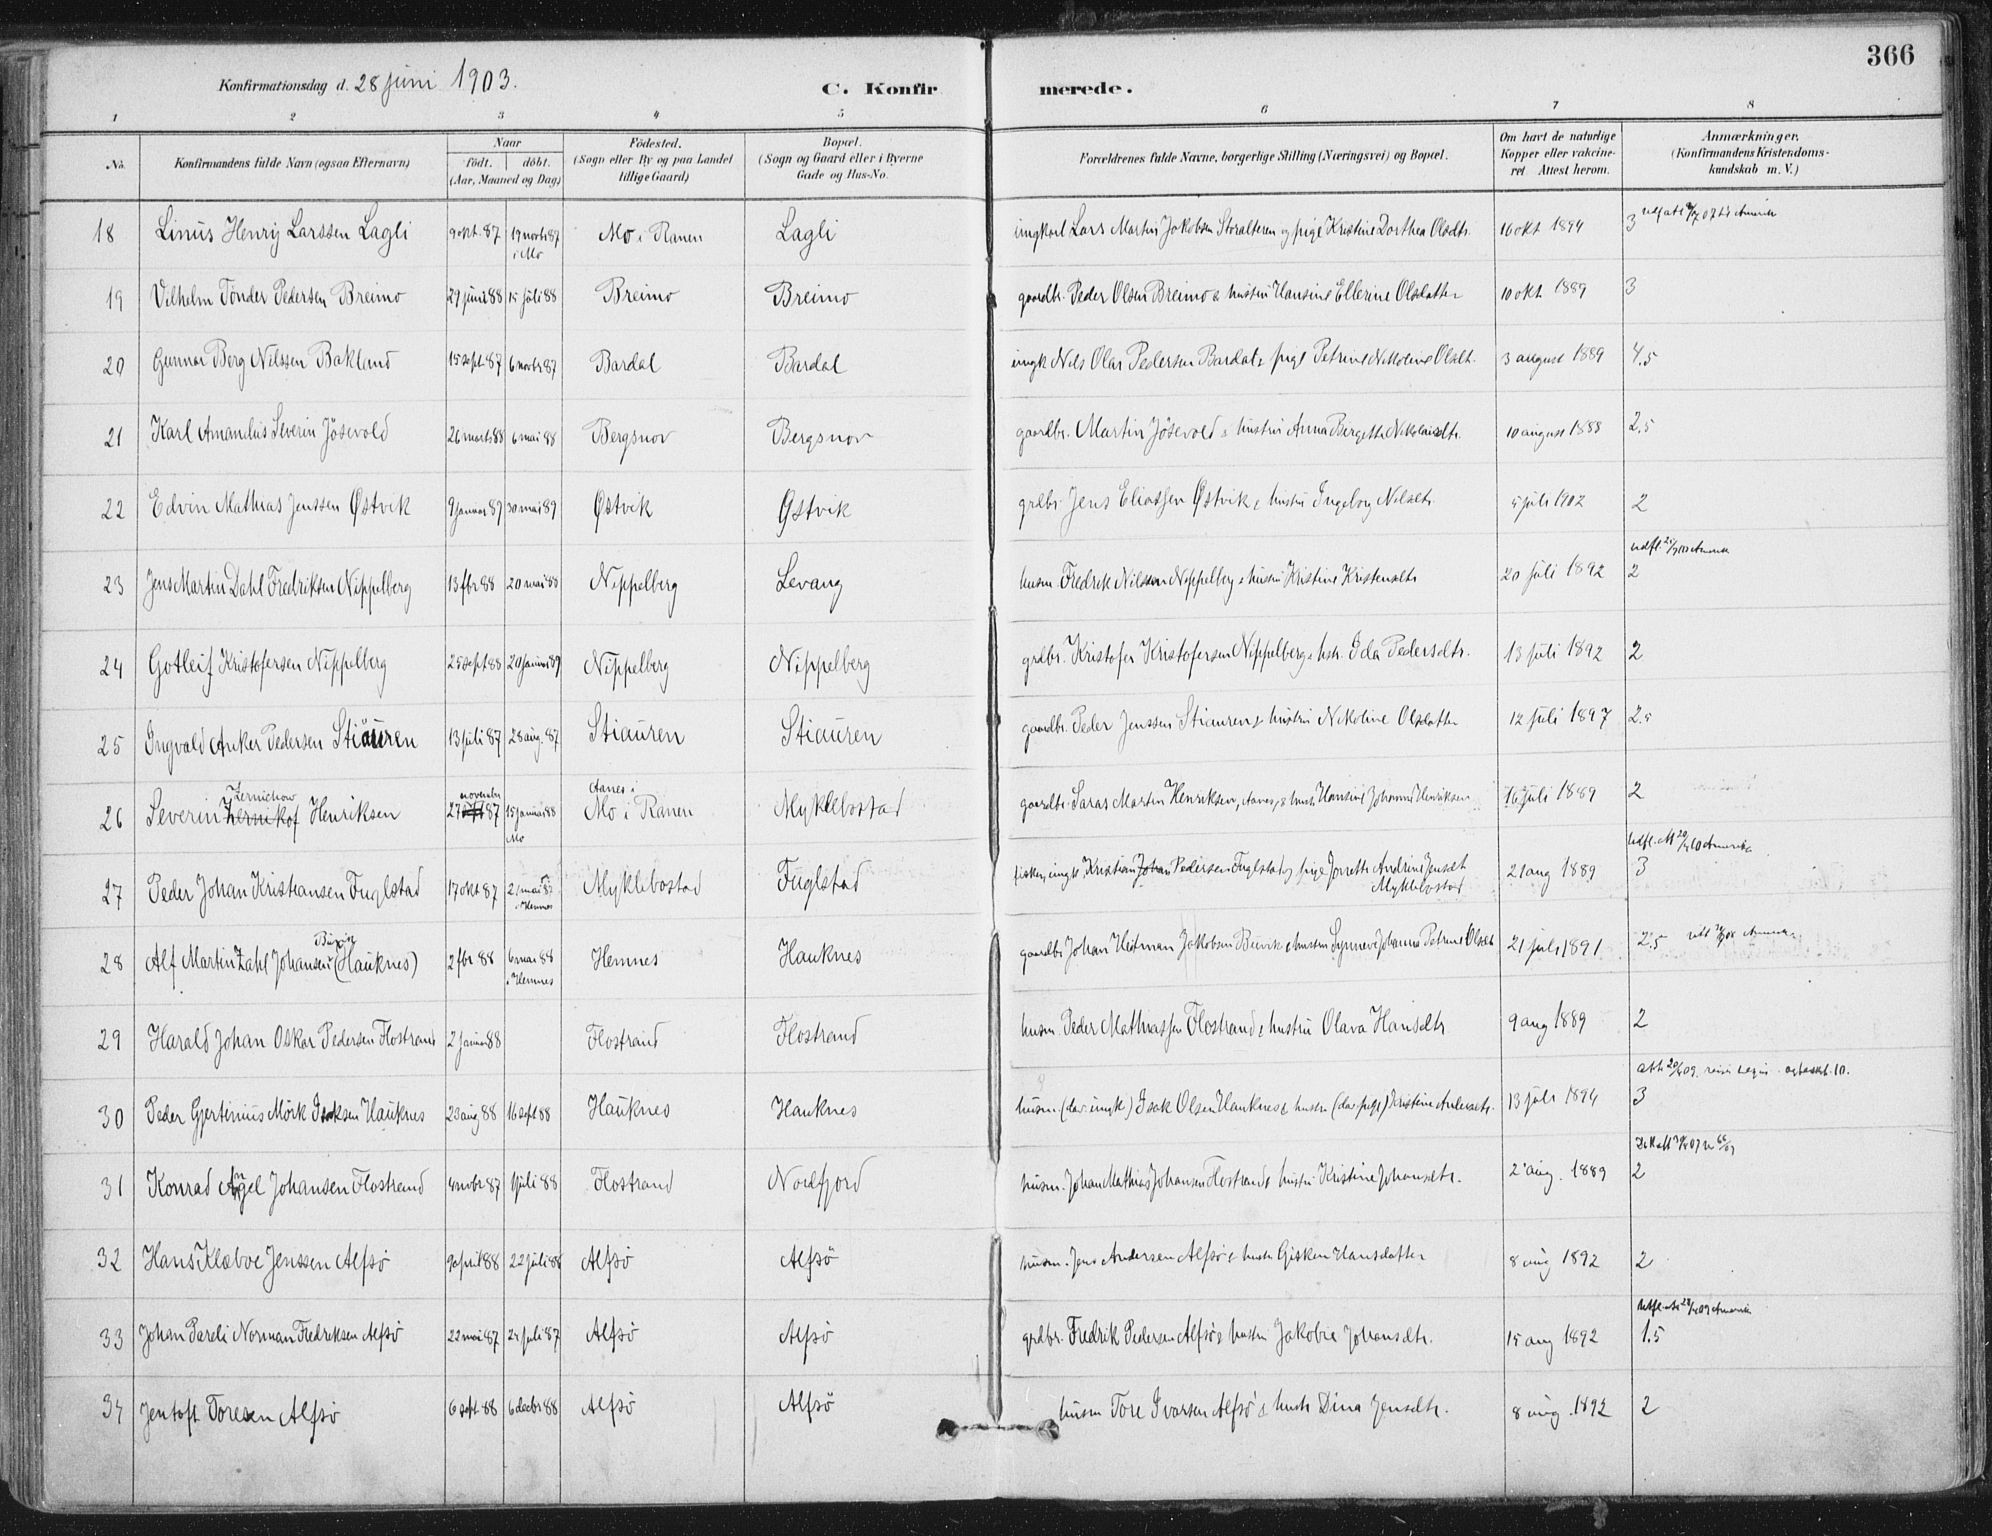 366
Konfirmationsdag d. 28 juni 1903.
C. Konfirmerede.
1 2 3 4 5 6 7 8
No. Konfirmandens fulde Navn (ogsaa Efternavn) Naar födt. döbt. (Aar, Maaned og Dag) Födested. (Sogn eller By og paa Landet tillige Gaard) Bopæl. (Sogn og Gaard eller i Byerne Gade og Hus-No. Forældrenes fulde Navne, borgerlige Stilling (Næringsvei) og Bopæl. Om havt de naturlige Kopper eller vakcineret Attest herom. Anmærkninger. (Konfirmandens Kristendomskundskab m. V.)
18 Linus Henrij Larssen Lagli 9 okt. 87 19 novbr 87 i Mo Mo i Ranen Lagli ungkarl Lars Martin Jakobsen Storalteren og pige Kristine Dorthea Olsdtr. 16 okt 1894 3
19 Vilhelm Tönder Pedersen Breimo 29 juni 88 15 juli 88 Breimo Breimo gaardbr. Peder Olsen Breimo & hustru Hansine Ellerine Olsdatter 10 okt. 1889 3
20 Gunnar Berg Nilssen Bakland 15 sept. 87 6 novbr 87 Bardal Bardal ungk Nils Olai Pedersen Bardal & pige Petrine Nikoline Olsdt. 3 august 1889 4.5
21 Karl Amandus Severin Jösevold 26 marts 88 6 mai 88 Bergsnov Bergsnov gaardbr. Martin Jösevold & hustru Anna Bergitte Nikolaisdtr. 10 august 1888 2.5
22 Edvin Mathias Jenssen Østvik 9 januar 89 30 mai 89 Østvik Østvik grdbr. Jens Eliassen Østvik & hustru Ingeborg Nilsdtr. 5 juli 1902 2
23 Jens Martin Dahl Fredriksen Nippelberg 13 fbr 88 20 mai 88 Nippelberg Levang husm. Fredrik Nilsen Nippelberg & hustru Kristine Kristensdtr 20 juli 1892 2
24 Gotleif Kristofersen Nippelberg 25 sept 88 20 januar 89 Nippelberg Nippelberg grdbr. Kristofer Kristofersen Nippelberg & hstr. Ida Pedersdtr. 13 juli 1892 2
25 Ingvald Anker Pedersen Stiauren 13 juli 87 28 aug. 87 Stiauren Stiauren gaardbr. Peder Jenssen Stiauren & hustru Nikoline Olsdatter 12 juli 1897 2.5
26 Severin Zernichow Henriksen 27 november 87 15 januar 88 Mo Aanes i Mo i Ranen Myklebostad gaardbr. Martin Henriksen, Aanes, & hustr Hansine Johanna Henriksen 16 juli 1889 2
27 Peder Johan Kristiansen Fuglstad 17 okt 87 Hemnes Myklebostad Fuglstad fisker, ungk Kristian Johan Pedersen Fuglstad og pige Andrine Jensdt Myklebostad 21 aug 1889 3
28 Alf Martin Zahl Johansen (Hauknes) 2 fbr 88 6 mai 88 i Hemnes Hemnes Hauknes gaardbr Johan Heitman Jakobsen & hustru Synnev Johanna Petrine Olsdt 21 juli 1891 2.5
29 Harald Johan Oskar Pedersen Flostrand 2 januar 88 Flostrand Flostrand husm. Peder Mathiassen Flostrand & hustru Olava Hansdtr 9 aug 1889 2
30 Peder Gjertinius Mörk Isaksen Hauknes 23 aug 88 16 sept 88 Hauknes Hauknes husm. (dav. ungk) Isak Olsen Hauknes & hustru (dav pige) Kristine Andersdtr. 13 juli 1894 3
31 Konrad Angel Johansen Flostrand 4 novbr 87 1 juli 88 Flostrand Nordfjord husm. Johan Mathias Johansen Flostrand & hustru Kristine Johansdtr. 2 aug. 1889 2
32 Hans Klæboe Jenssen Alfsö 9 april 88 22 juli 88 Alfsö Alfsö husm. Jens Andersen Alfsö & hustr Gisken Hansdatter 8 aug 1892 2
33 Johan Pareli Norman Fredriksen Alfsö 22 mai 87 24 juli 87 Alfsö Alfsö grdbr. Fredrik Pedersen Alfsö & hustru Jakobie Johansdtr. 15 aug 1892 1.5
34 Jentoft Toresen Alfsö 6 sept 88 6 decbr 88 Alfsö Alfsö husm Tore Ivarsen Alfsö & hustr Dina Jensdtr. 8 aug. 1892 2